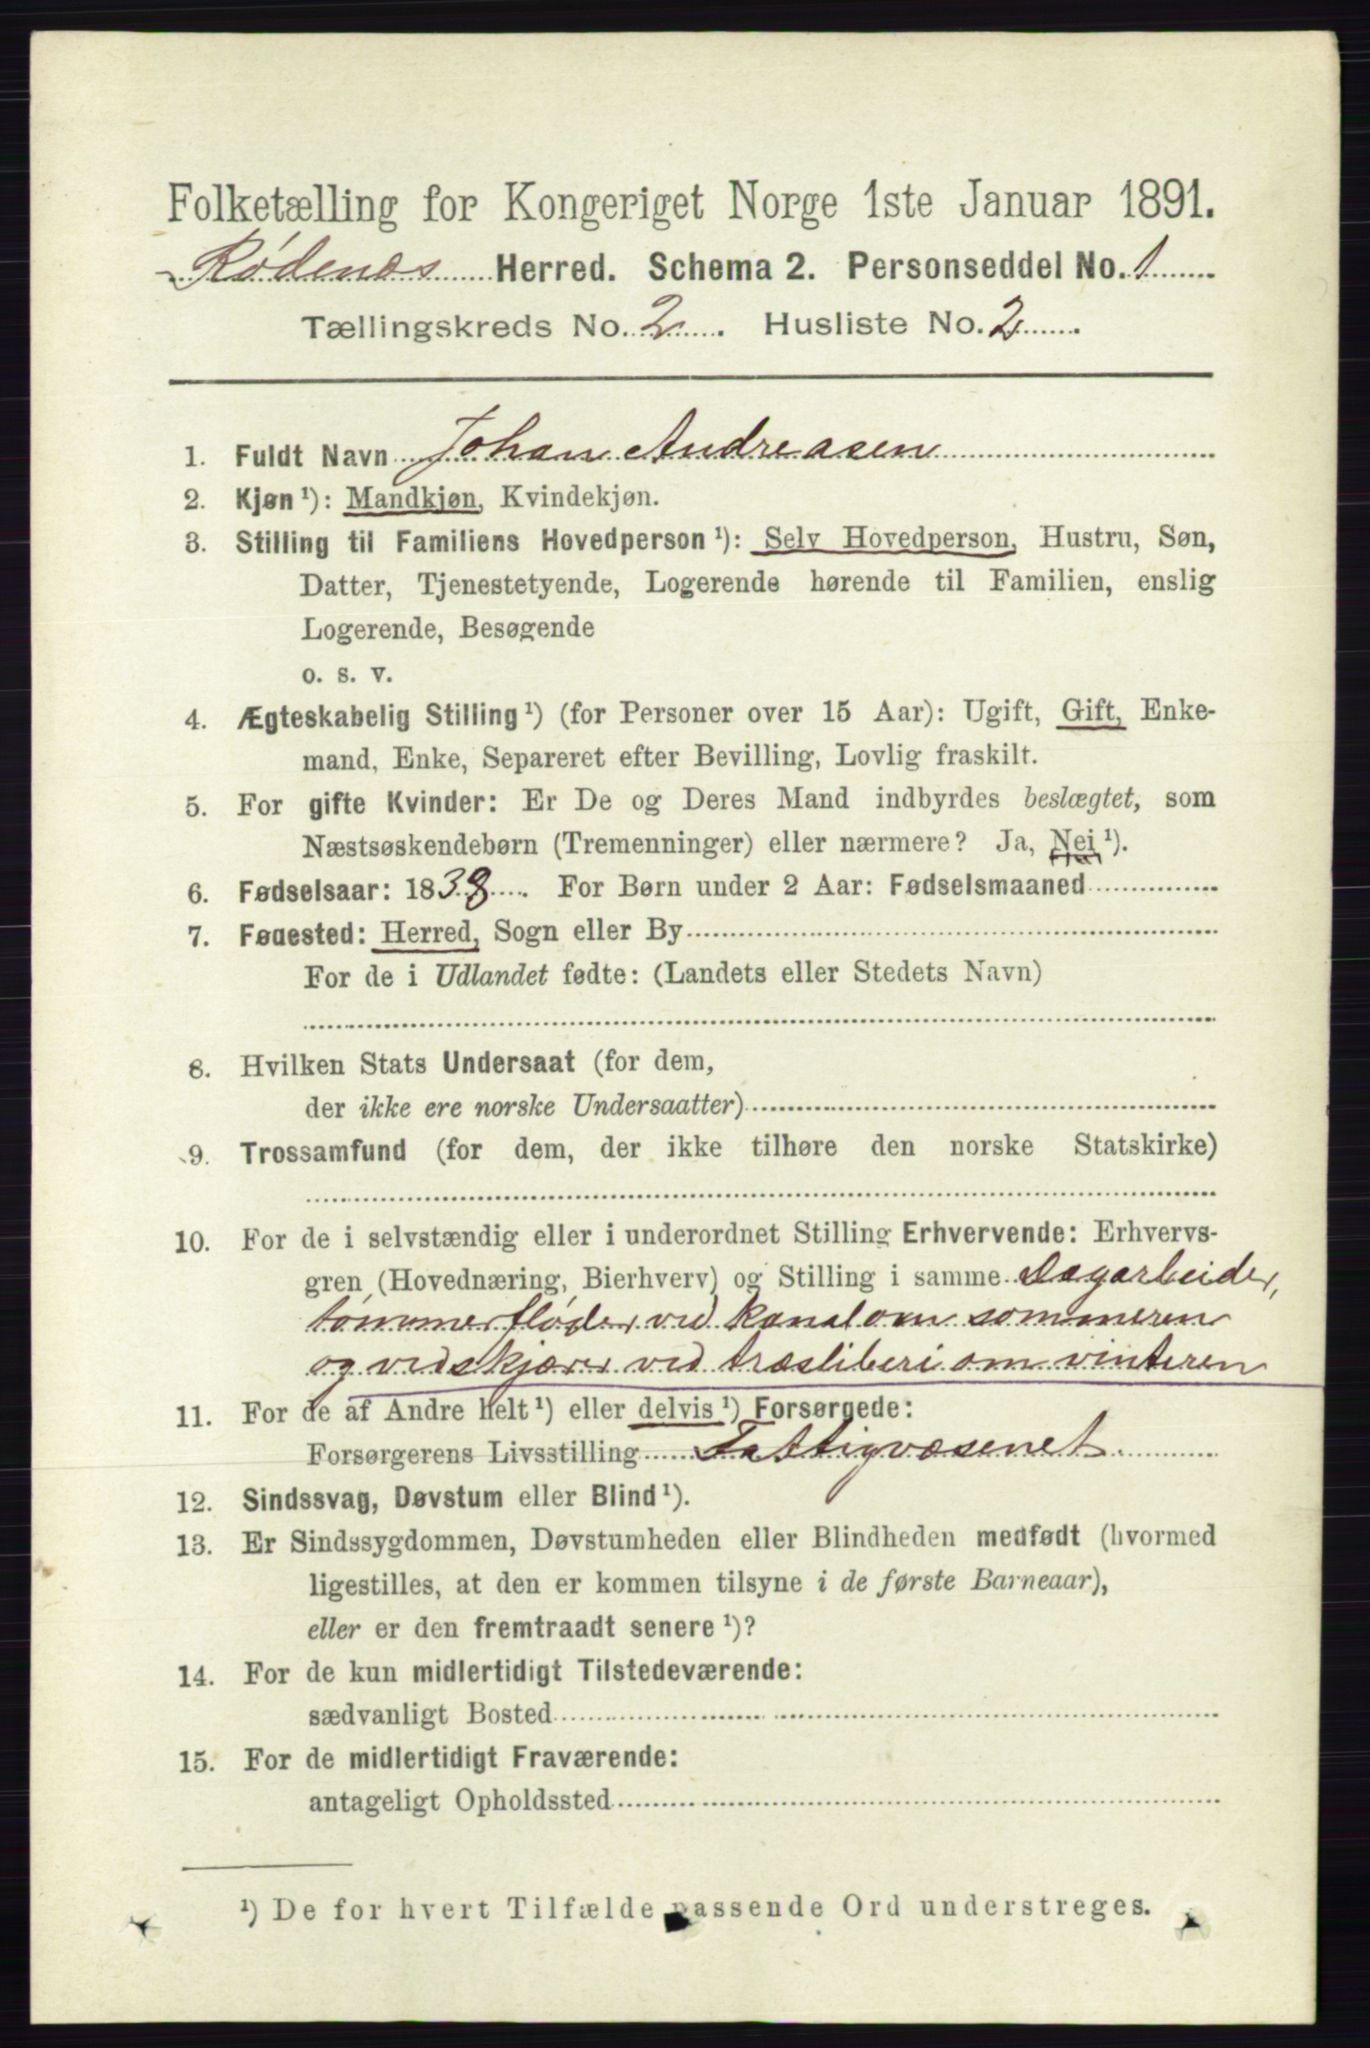 Folketælling for Kongeriget Norge 1ste Januar 1891.
Rødenæs Herred. Schema 2. Personseddel No. 1
Tællingskreds No. 2. Husliste No. 2.
1. Fuldt Navn Johan Andreasen
2. Kjøn ¹): Mandkjøn, Kvindekjøn.
3. Stilling til Familiens Hovedperson ¹): Selv Hovedperson, Hustru, Søn,
Datter, Tjenestetyende, Logerende hørende til Familien, enslig
Logerende, Besøgende
o. s. v.
4. Ægteskabelig Stilling ¹) (for Personer over 15 Aar): Ugift, Gift, Enke-
mand, Enke, Separeret efter Bevilling, Lovlig fraskilt.
5. For gifte Kvinder: Er De og Deres Mand indbyrdes beslægtet, som
Næstsøskendebørn (Tremenninger) eller nærmere? Ja, Nei ¹).
6. Fødselsaar: 1838. For Børn under 2 Aar: Fødselsmaaned
7. Fødested: Herred, Sogn eller By
For de i Udlandet fødte: (Landets eller Stedets Navn)
8. Hvilken Stats Undersaat (for dem,
der ikke ere norske Undersaatter)
9. Trossamfund (for dem, der ikke tilhøre den norske Statskirke)
10. For de i selvstændig eller i underordnet Stilling Erhvervende: Erhvervs-
gren (Hovednæring, Bierhverv) og Stilling i samme Dagarbeider,
tømmerfløder ved kanal om sommeren
og vedskjærer ved træsliberi om vinteren
11. For de af Andre helt ¹) eller delvis ¹) Forsørgede:
Forsørgerens Livsstilling Fattigvæsenet.
12. Sindssvag, Døvstum eller Blind ¹).
13. Er Sindssygdommen, Døvstumheden eller Blindheden medfødt (hvormed
ligestilles, at den er kommen tilsyne i de første Barneaar),
eller er den fremtraadt senere ¹)?
14. For de kun midlertidigt Tilstedeværende:
sædvanligt Bosted
15. For de midlertidigt Fraværende:
antageligt Opholdssted
¹) De for hvert Tilfælde passende Ord understreges.